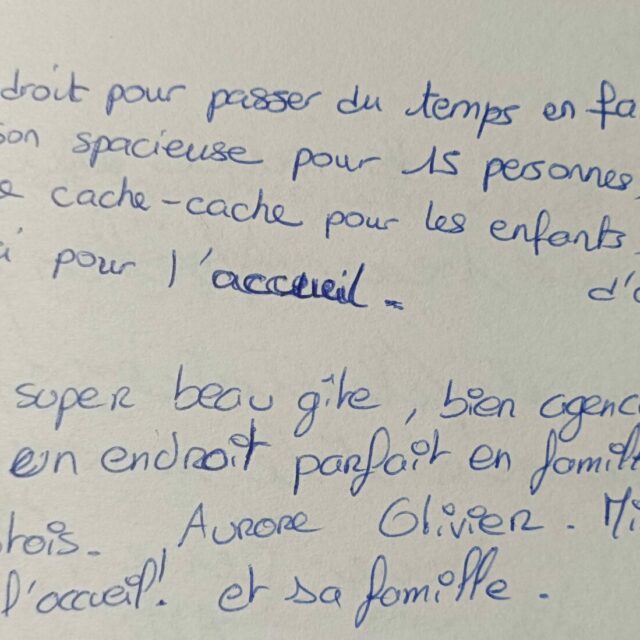 droit pour passer du temps en fa
son spacieuse pour 15 personnes,
cache-cache pour les enfants,
pour l'accueil. d'a
super beau gîte, bien agenc
un endroit parfait en famill
trois. Aurore Olivier. Mi
l'accueil! et sa famille.